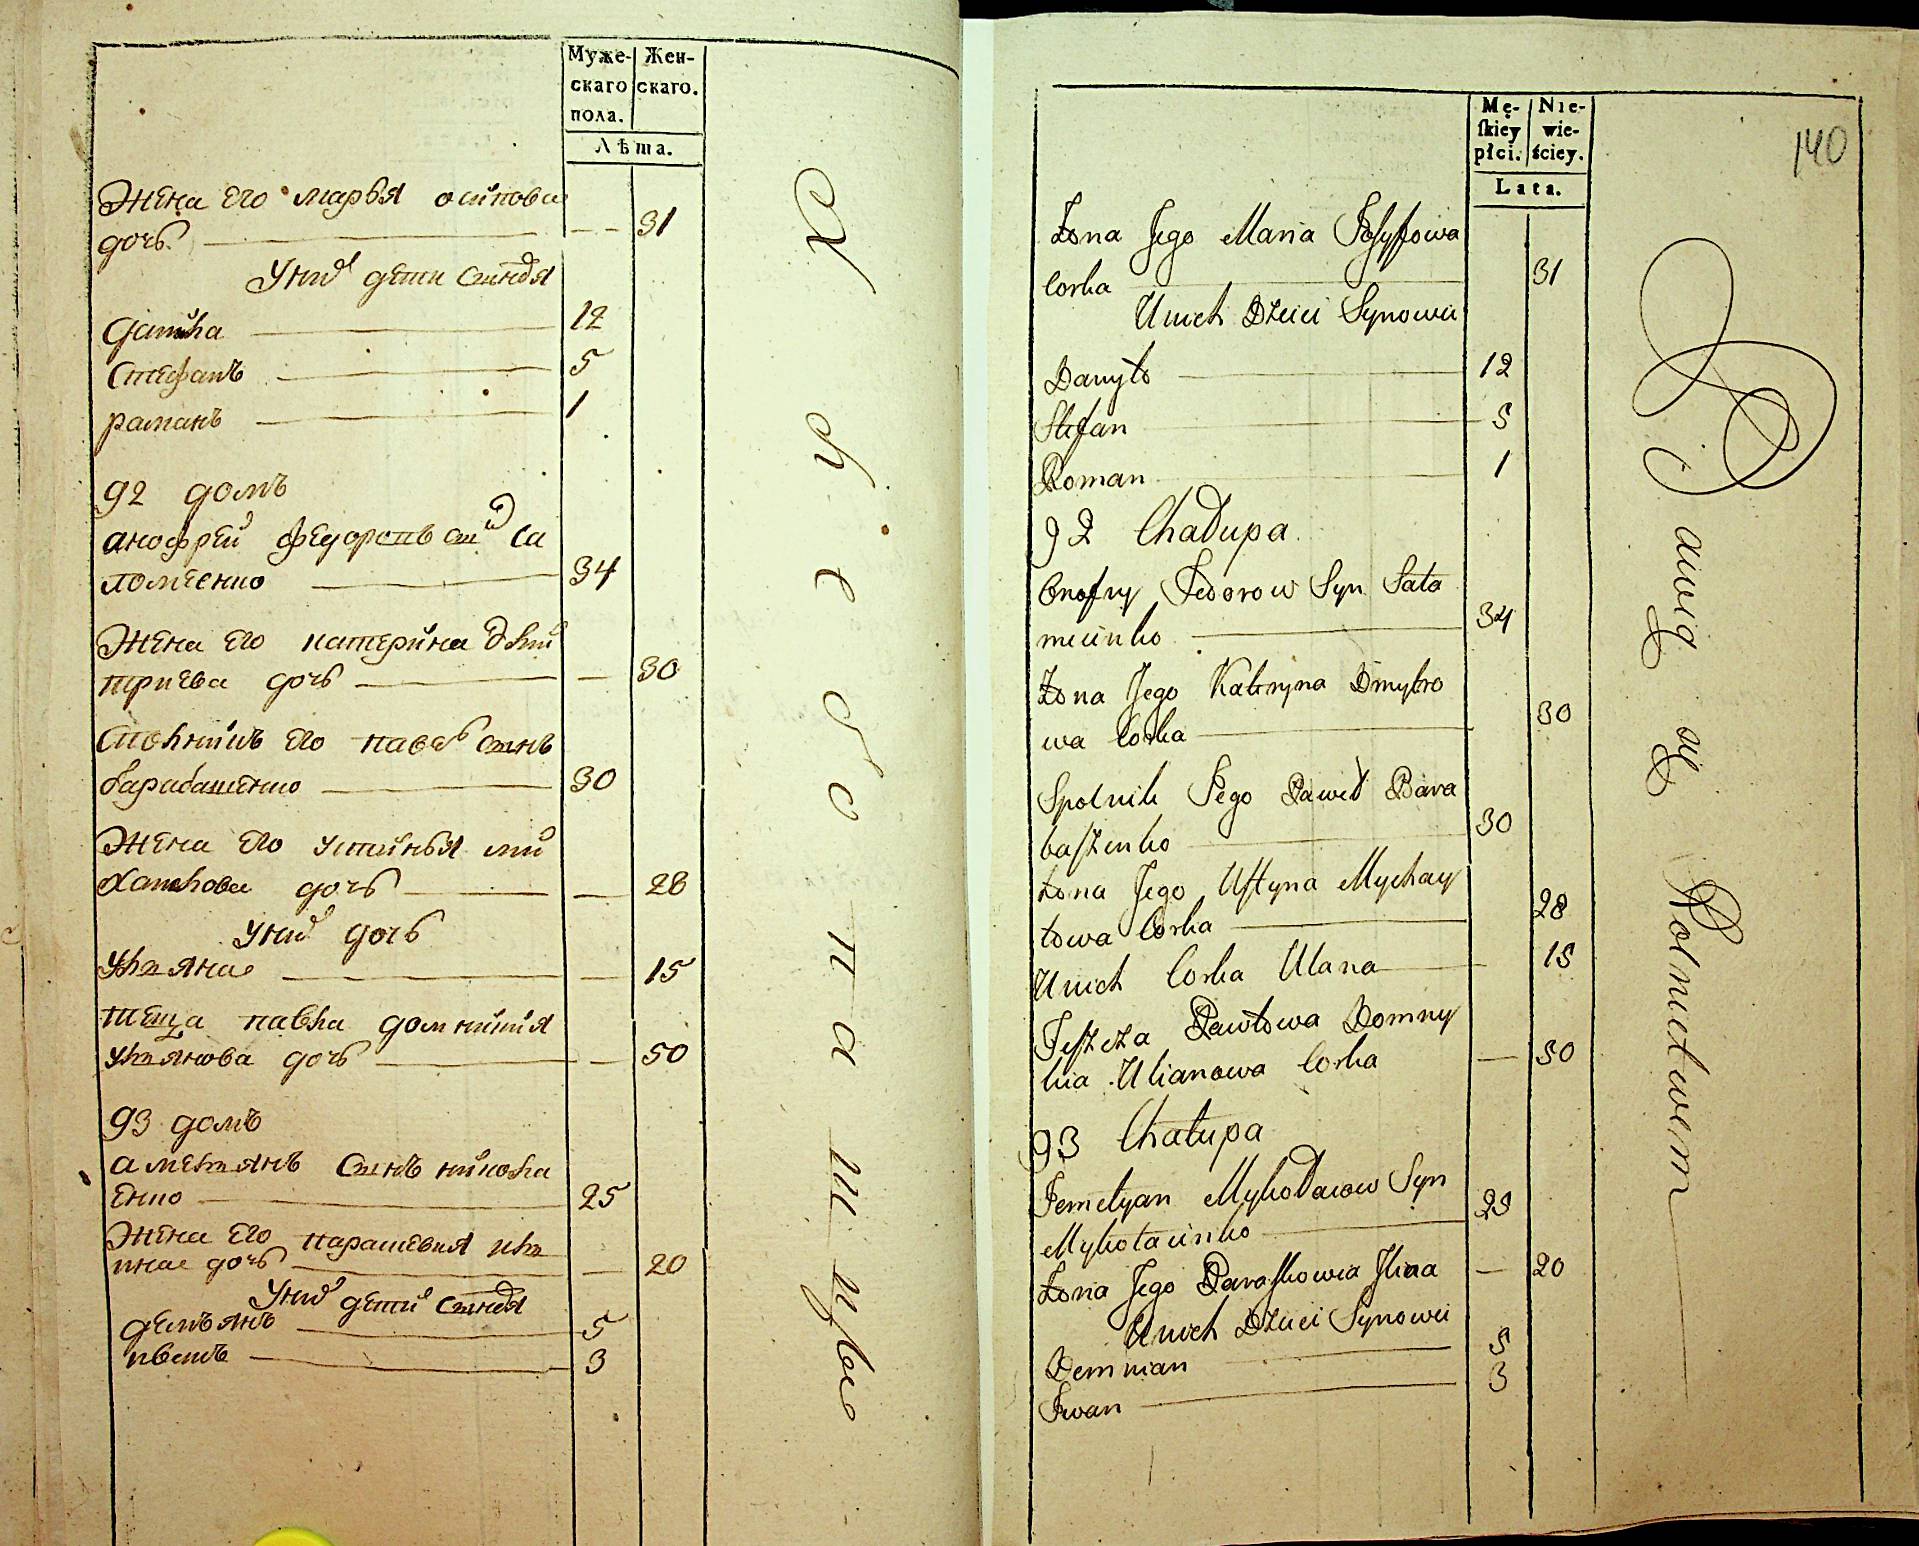 Муже-
скаго
пола.
Жен-
скаго.
Лѣта.
Жена Его марья осипова
дочь 31
Униx дети сыновя
данила 12
Стефанъ 5
раманъ 1
92 домъ
анофрей федоровъ сынъ Са
ломеенко 34
Жена Его катерина дми
триева дочь 30
Спольникъ Его павелъ сынъ
барабашенко 30
Жена Его устинья ми
хайлова дочь 28
Униx дочь
Ульяна 15
теща павла домникия
ульянова дочь 50
93 домъ
амельянъ Сынъ никола
Енко 25
Жена Его парасковия ильи
на дочь 20
Униx дети сыновя
демьянъ 5
иванъ 3
Хлебопашцы
Mę-
skiey
płci.
Nie-
wie-
ściey.
Lata.
140
Żona Jego Maria Josyfowa
Corka 31
Unich Dzieci Synowie
Danyło 12
Stefan 5
Roman 1
92 Chałupa
Onofry Fedorow Syn Sało
mieinko 34
Żona Jego Katryna Dmytro
wa Corka 30
Spolnik Jego Paweł Bara
baszenko 30
Żona Jego Ustyna Mychay
łowa Corka 28
Unich Corka Ulana 15
Teszcza Pawłowa Domny
kia Ulianowa Corka 50
93 Chałupa
Jemelyan Mykołaiow Syn
Mykołaienko 25
Żona Jego Paraskowia Jlina 20
Unich Dzieci Synowie
Demnian 5
Iwan 3
Bawią się Rolnictwem